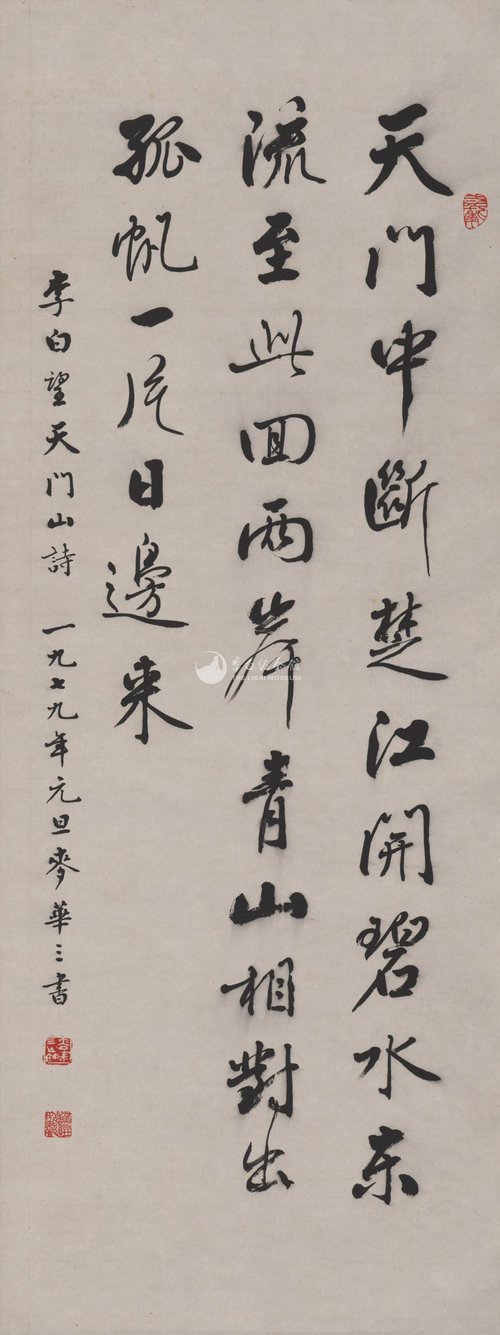 天門中斷楚江開碧水东
流至此回兩岸青山相對出
孤帆一片日邊来
李白望天門山詩 一九七九年元旦麥華三書
李白纪念馆
THE LIBAI MUSEUM